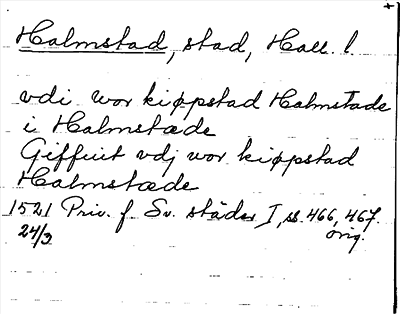 Halmstad, stad, Hall. l
vdi wor kiøpstad Halmstade
i Halmstæde
Giffuit vdj vor kiøpstad
Halmstæde
1521 Priv. f. Sv. städer I, ss. 466, 467.
24/3 orig.